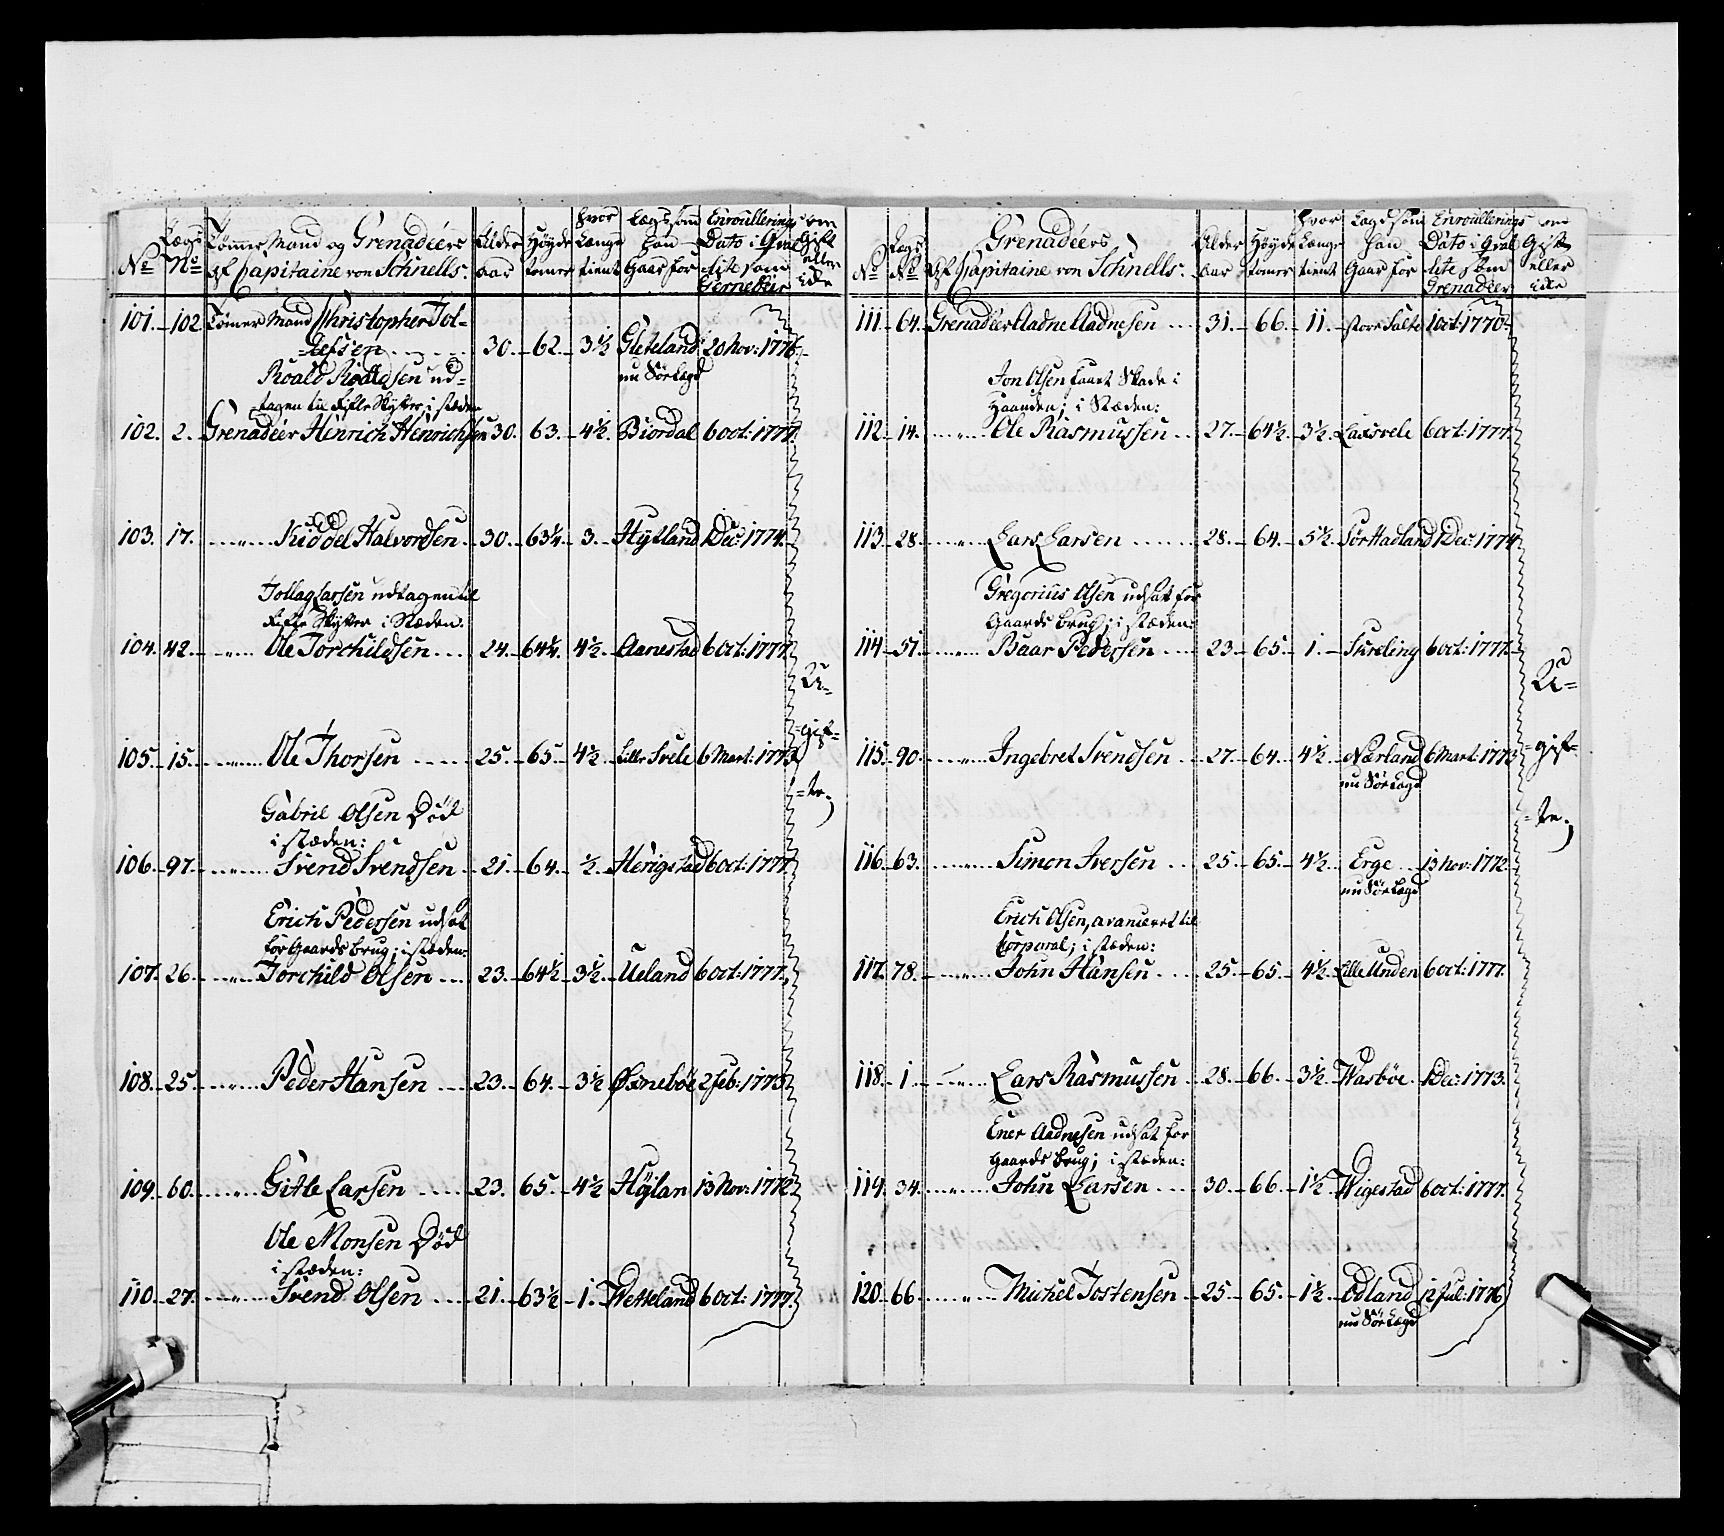 No | Lægs No | Tømer Mand og Grenadéers af Capitaine von Schnells. | Alder aar | Høyde tomer | hvor Længe tient | Lægd som han Gaar for | Enroullerings Dato i Qvalitè som Gernedeir | om Gift eller ide
101. 102 Tømer Mand Christopher Tol-
lefsen 30. 62. 3½ Gleteland 20 Nov: 1776
nu Sør Lægd
Roald Roaldsen ud-
tagen til Rifle Skytter i stæden
102. 2. Grenadéer Henrich Henrichsen 30. 63. 4½. Biordal 6 oct: 1777.
103. 17. " Kiddel Halvordsen 30. 63¼. 3. Hytland 1 Dec: 1774.
Tollag Larsen udtagen til
Rifle Skytter i Stæden.
104. 42. " Ole Torchildsen 24. 64¼. 4½. Aanestad 6 Oct: 1777.
U-
105. 15. " Ole Thorsen 25. 65. 4½. Lille Svele 6 Mart: 1773.
-gift-
-te;
Gabril Olsen Död
i stæden:
106. 97. " Svend Svendsen 21. 64. ½. Herigstad 6 oct: 1777.
Erich Pedersen udsat
for Gaards brug; i stæden:
107. 26. " Torchild Olsen 23. 64½. 3½. Ueland 6 oct: 1777.
108. 25. " Peder Hansen 23. 64. 3½ Øsnebøe 2 feb: 1773.
109. 60. " Gitle Larsen 23. 65. 4½ Høylan 13 Nov: 1772.
Ole Monsen Död
i stæden:
110. 27. " Svend Olsen 21. 63½ 1. Wetteland 6 oct: 1777.
No | Lægs No | Grenadéers Af Capitaine von Schnells. | Alder aar | Høyde tomer | hvor Længe tient | Lægd som han Gaar for | Enroullerings Dato i Qvalitè som Grenadéer | om Gift eller ide
111. 64. Grenadéer Aadne Aadnesen 31. 66. 11. stoor Salte 1 oct: 1770.
Jon Olsen faaet Skade i
Haanden; i Stæden:
112. 14. " Ole Rasmussen 27. 64½. 3½. Laxsvele 6 oct: 1777.
113. 28. " Lars Larsen 28. 64. 5½. Sør Hadland 1 Dec: 1774
Gregorius Olsen udsat for
Gaards brug; i stæden:
114. 51. " Baar Pedersen 23. 65. 1. Skreling 6 oct: 1777.
U-
115. 90. " Ingebret Svendsen 27. 64. 4½ Nærland 6 Mart: 1773
nu Sør Lægd
-gift-
-te;
116. 63. " Simon Iversen 25. 65. 4½. Erge 13 Nov: 1772.
nu Sør Lægd
Erich Olsen, avanceret til
Corporal; i stæden:
117. 78. " John Hansen 25. 65. 4½. Lille Unden 6 oct: 1777.
118. 1. " Lars Rasmussen 28. 66. 3½. Wasbøe. 1 Dec: 1773.
Ener Aadnesen udsat for
gaards brug; i stæden:
119. 34. " John Larsen 30. 66. 1½. Wigestad 6 oct: 1777.
120. 66. " Michel Tostensen 25. 65. 1½. Odland 12 Jul: 1776
nu Sør Lægd